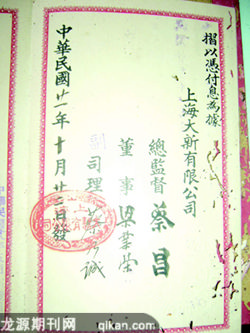 摺以憑付息為據
上海大新有限公司
總監督 蔡昌
董事 梁
副司理 誠
中華民國廿一年十月廿二日發
龙源期刊网 qikan.com